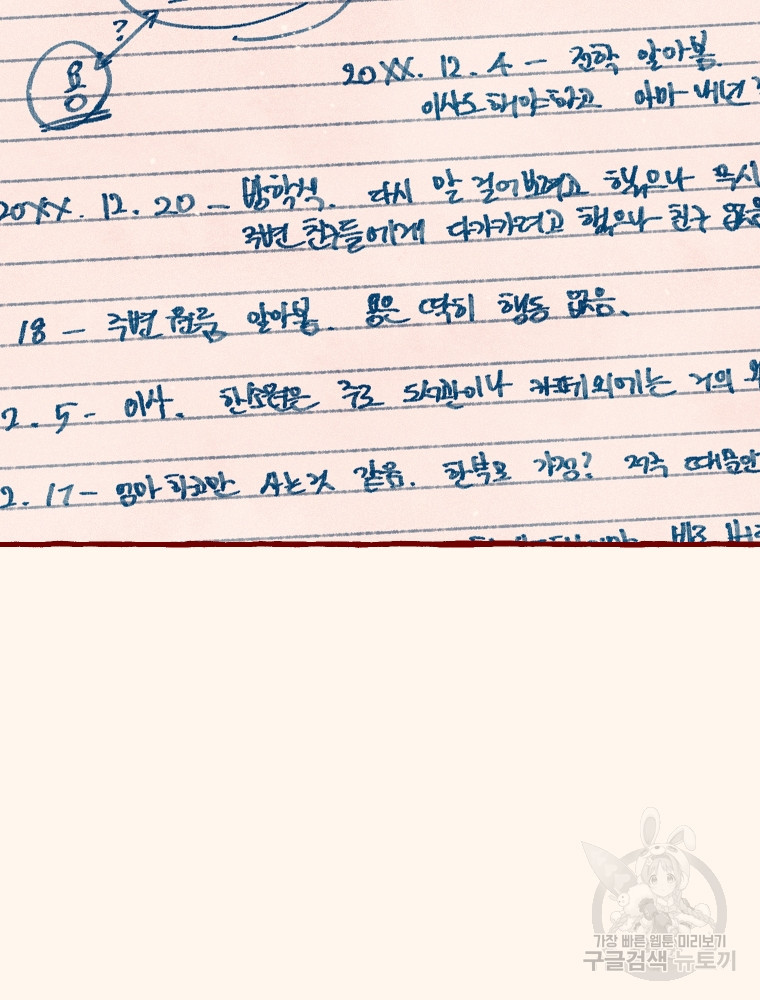 ?
용
20XX. 12. 4 - 전학 알아봄
이사도 해야하고 아마 내년
20XX. 12. 20 - 방학식. 다시 말 걸어보려고 했으나 무시
주변 친구들에게 다가가려고 했으나 친구 없음
18 - 주변 원룸 알아봄. 용은 딱히 행동 없음.
2. 5 - 이사. 한소영은 주로 도서관이나 카페 외에는 거의
2. 17 - 엄마하고만 사는것 같음. 한부모 가정? 저주 때문인
바로
가장 빠른 웹툰 미리보기
구글검색 뉴토끼